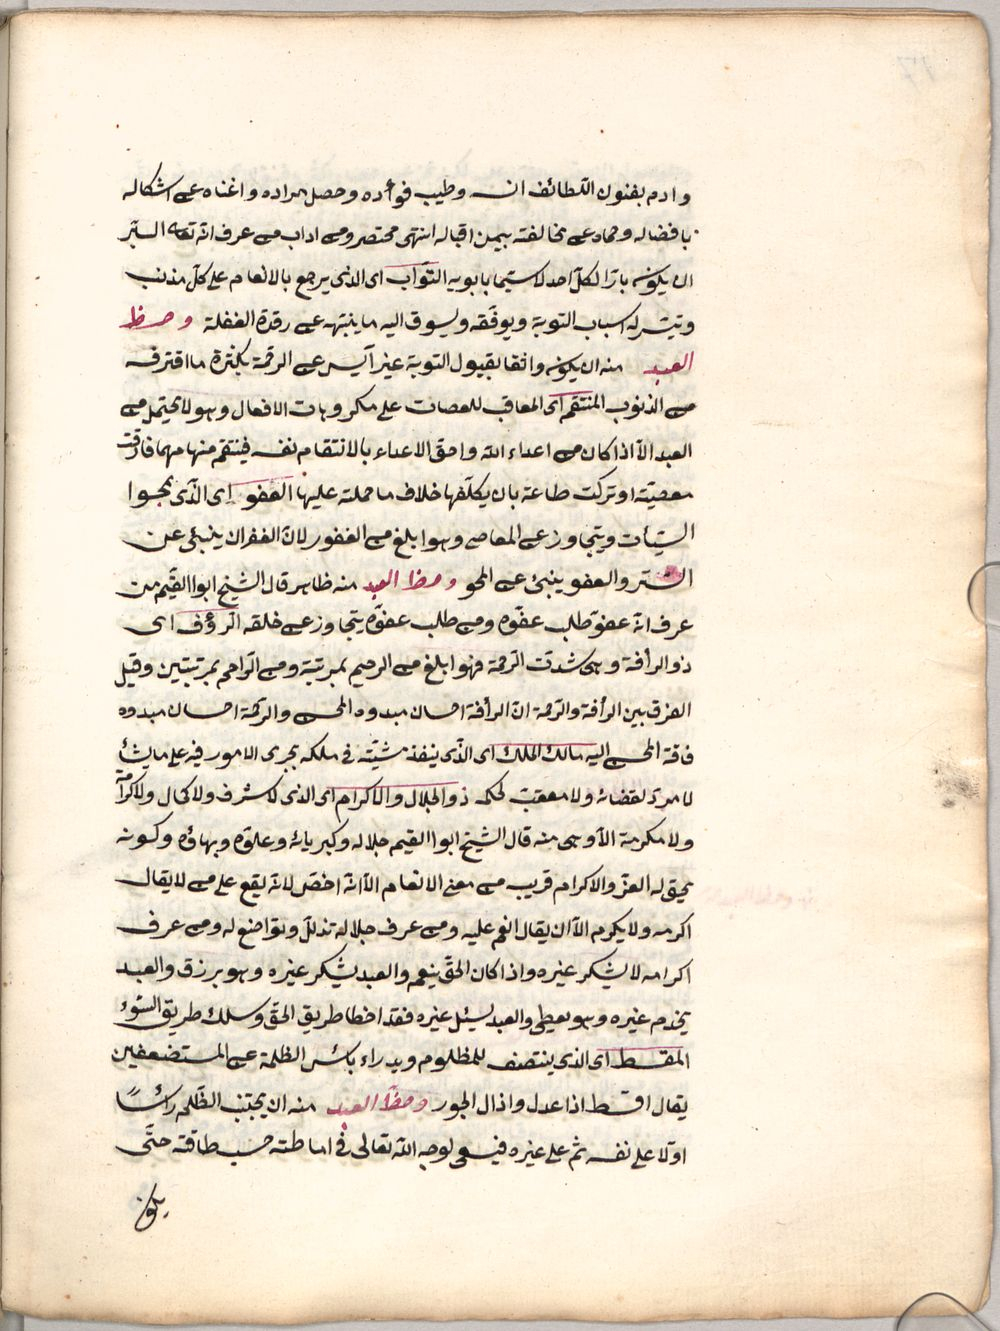 وادم بفنون اللطائف انسه وطيب فوأده وحصل مراده واغناه عن اشكاله
بافضاله وحماه عن مخالفته بيمن اقباله انتهى مختصرو من اداب من عرف انه تعه البر
ان يكون بارا لكل احد لا سيما بابويه التواب اى الذى يرجع بالانعام على كل مذنب
وتيسر له اسباب التوبة ويوفقه ويسوق اليه ما ينبهه عن رقدة الغفلة وحظ
العبد منه ان يكون واثقا بقبول التوبة غير آيس عن الرحمة بكثرة ما اقترفه
من الذنوب المنتقم اى المعاقب للعصات على مكروهات الافعال وهو لا يحتمل من
العبد الا اذا كان من اعداء الله واحق الاعداء بالانتقام نفسه فينتقم منها مهما قارفت
معصية او تركت طاعة بان يكلفها خلاف ما حملته عليها العفو اى الذى يمحوا
السيئات ويتجاوز عن المعاصى وهو ابلغ من الغفور لان الغفران ينبئى عن
الستر والعفو ينبئ عن المحو وحظ العبد منه ظاهر قال الشيخ ابو القيم من
عرف انه عفو طلب عفوه ومن طلب عفوه يتجاوز عن خلقه الرؤف اى
ذو الرأفة وهى شدت الرحمة فهو ابلغ من الرحيم بمرتبة ومن الراحم بمرتبتين وقيل
الفرق بين الرأفة والرحمة ان الرأفة احسان مبدوه المحسن والرحمة احسان مبدوه
فاقة المحسن اليه مالك الملك اى الذى ينفذ مشيته فى ملكه يجرى الامور فيه على ما يشأ
لا مرد لقضائه ولا معقب لحكمه ذو الجلال والاكرام اى الذى لا شرف ولا كمال ولا كرامة
ولا مكرمة الا وهى منه قال الشيخ ابو القيم جلاله وكبريائه وعلوه وبهاؤه وكونه
يحق له العز والاكرام قريب من معنى الانعام الا انه اخص لانه يقع على من لا يقال
اكرمه ولا يكرم الا ان يقال انعم عليه ومن عرف جلاله تذلل وتواضع له ومن عرف
اكرامه لا يشكر غيره واذا كان الحق ينعم والعبد يشكر غيره وهو برزق والعبد
يخدم غيره وهو يعطى والعبد يسئل غيره فقد اخطا طريق الحق وسلك طريق السوء
المقسط اى الذى ينتصف للمظلوم ويدراء بائس الظلمة عن المستضعفين
يقال اقسط اذا عدل واذال الجور وحظ العبد منه ان يجتنب الظلم رائسًا
اولا على نفسه ثم على غيره فيسعى لوجه الله تعالى فى اماطته حسب طاقته حتى
يكون